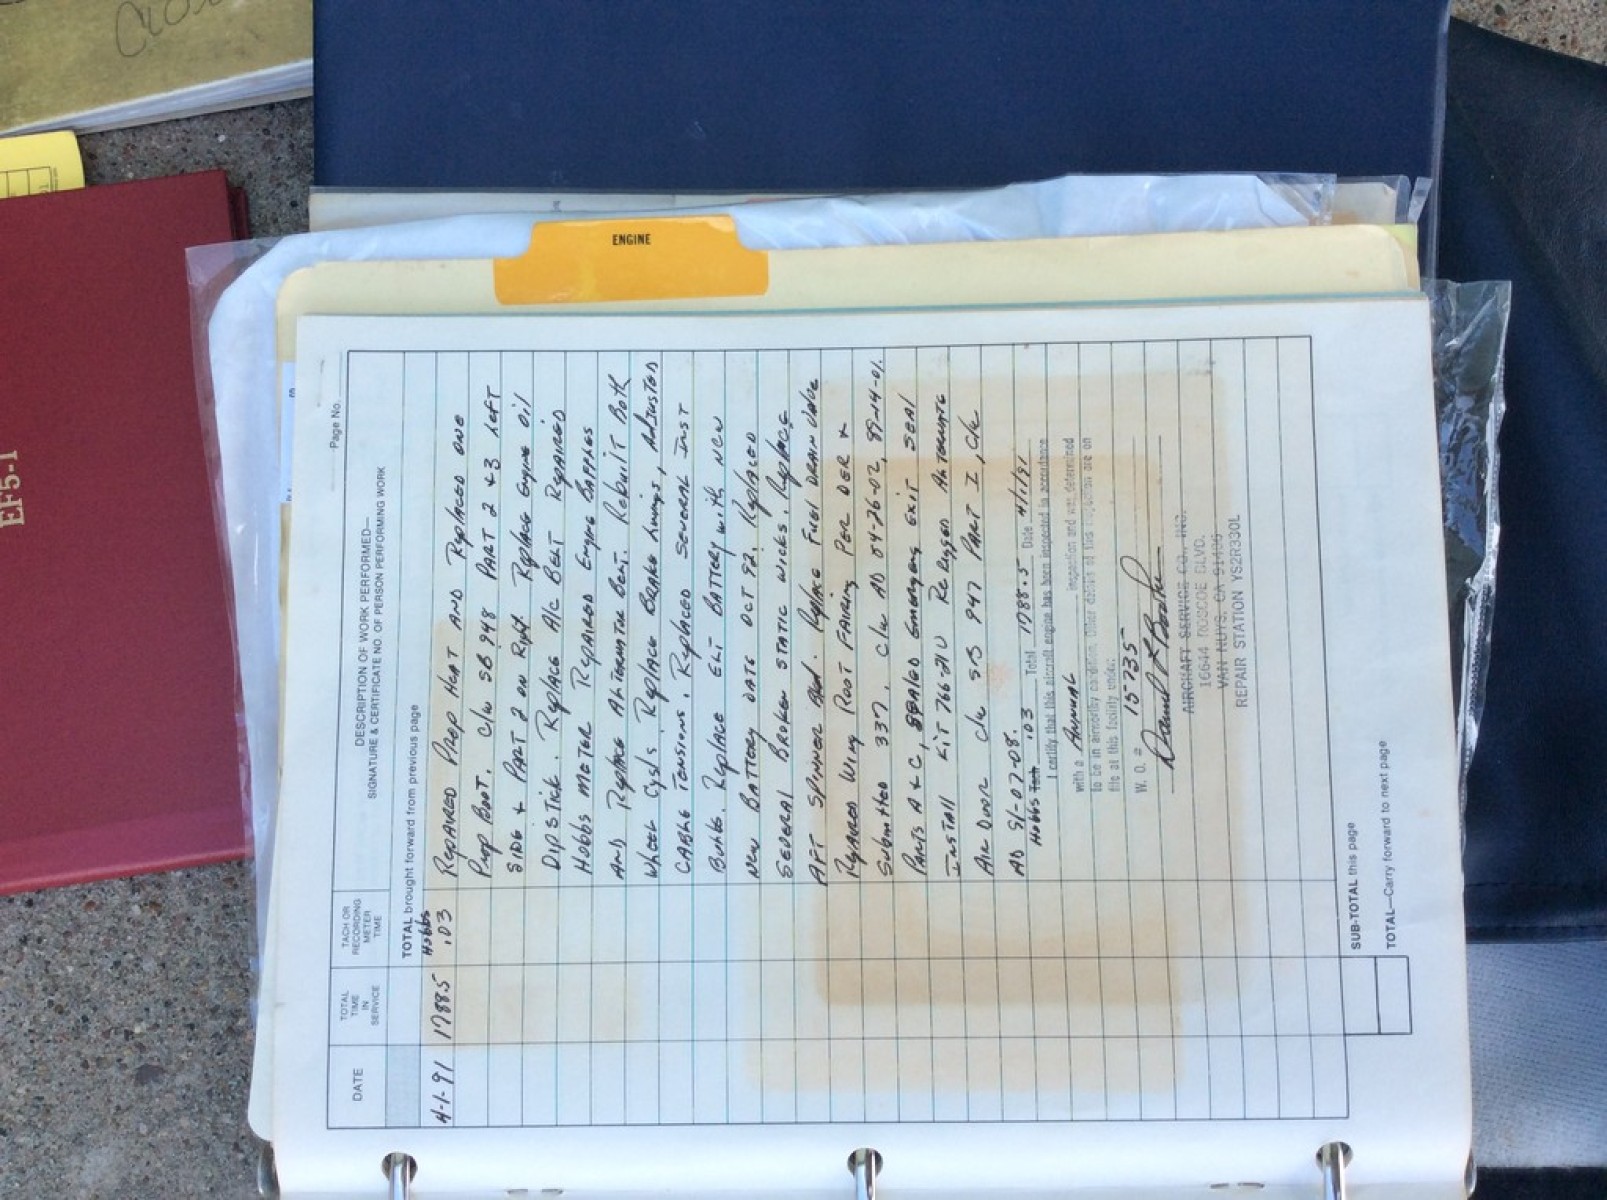 EF5-1
ENGINE
Page No.
DATE
TOTAL TIME IN SERVICE
TACH OR RECORDING METER TIME
DESCRIPTION OF WORK PERFORMED—
SIGNATURE & CERTIFICATE NO. OF PERSON PERFORMING WORK
TOTAL brought forward from previous page
Hobbs
4-1-91 1788.5 .03 Repaired Prop Heat and Replaced one
Prop Boot. c/w SB 948 Part 2 & 3 Left
Side & Part 2 on Right Replace Engine oil
Dipstick. Replace A/c Belt Repaired
Hobbs Meter Repaired Engine Baffles
And Replace Alternator Belt. Rebuilt Both
Wheel Cyls. Replace Brake Linings, Adjusted
Cable Tensions. Replaced several Inst
Bulbs. Replace ELT Battery with new
New Battery date Oct 92. Replaced
several Broken static wicks. Replace
Aft Spinner. Replace Fuel Drain Valve
Repaired Wing Root Fairing Per DER &
Submitted 337. c/w AD 84-26-02, 89-14-01
Parts A & C, Sealed Emergency Exit Seal
Install Kit 766-210 Rerigged Alternate
Air Door c/w SB 947 Part I, c/w
AD 91-07-08.
Hobbs Tach .03 Total 1788.5 Date 4/1/91
I certify that this aircraft engine has been inspected in accordance
with a Annual inspection and was determined
to be in airworthy condition. Other details of this inspection are on
file at this facility under:
W. O. # 15735
AIRCRAFT SERVICE CO., INC.
16644 ROSCOE BLVD.
VAN NUYS, CA 91406
REPAIR STATION YS2R330L
SUB-TOTAL this page
TOTAL—Carry forward to next page